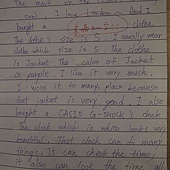 cool. I love
bought a clothe.
The clothe's size is S. I usually wear
clothe which size is S. The clothe
is Jacket. The color of Jacket
is purple. I like it very much.
I wore it to many place because
that jacket is very good. I also
bought a CASIO G-SHOCK's clock.
The clock which is white looks very
beautiful. That clock can do many
things. It can check the time,
it also can look the time all